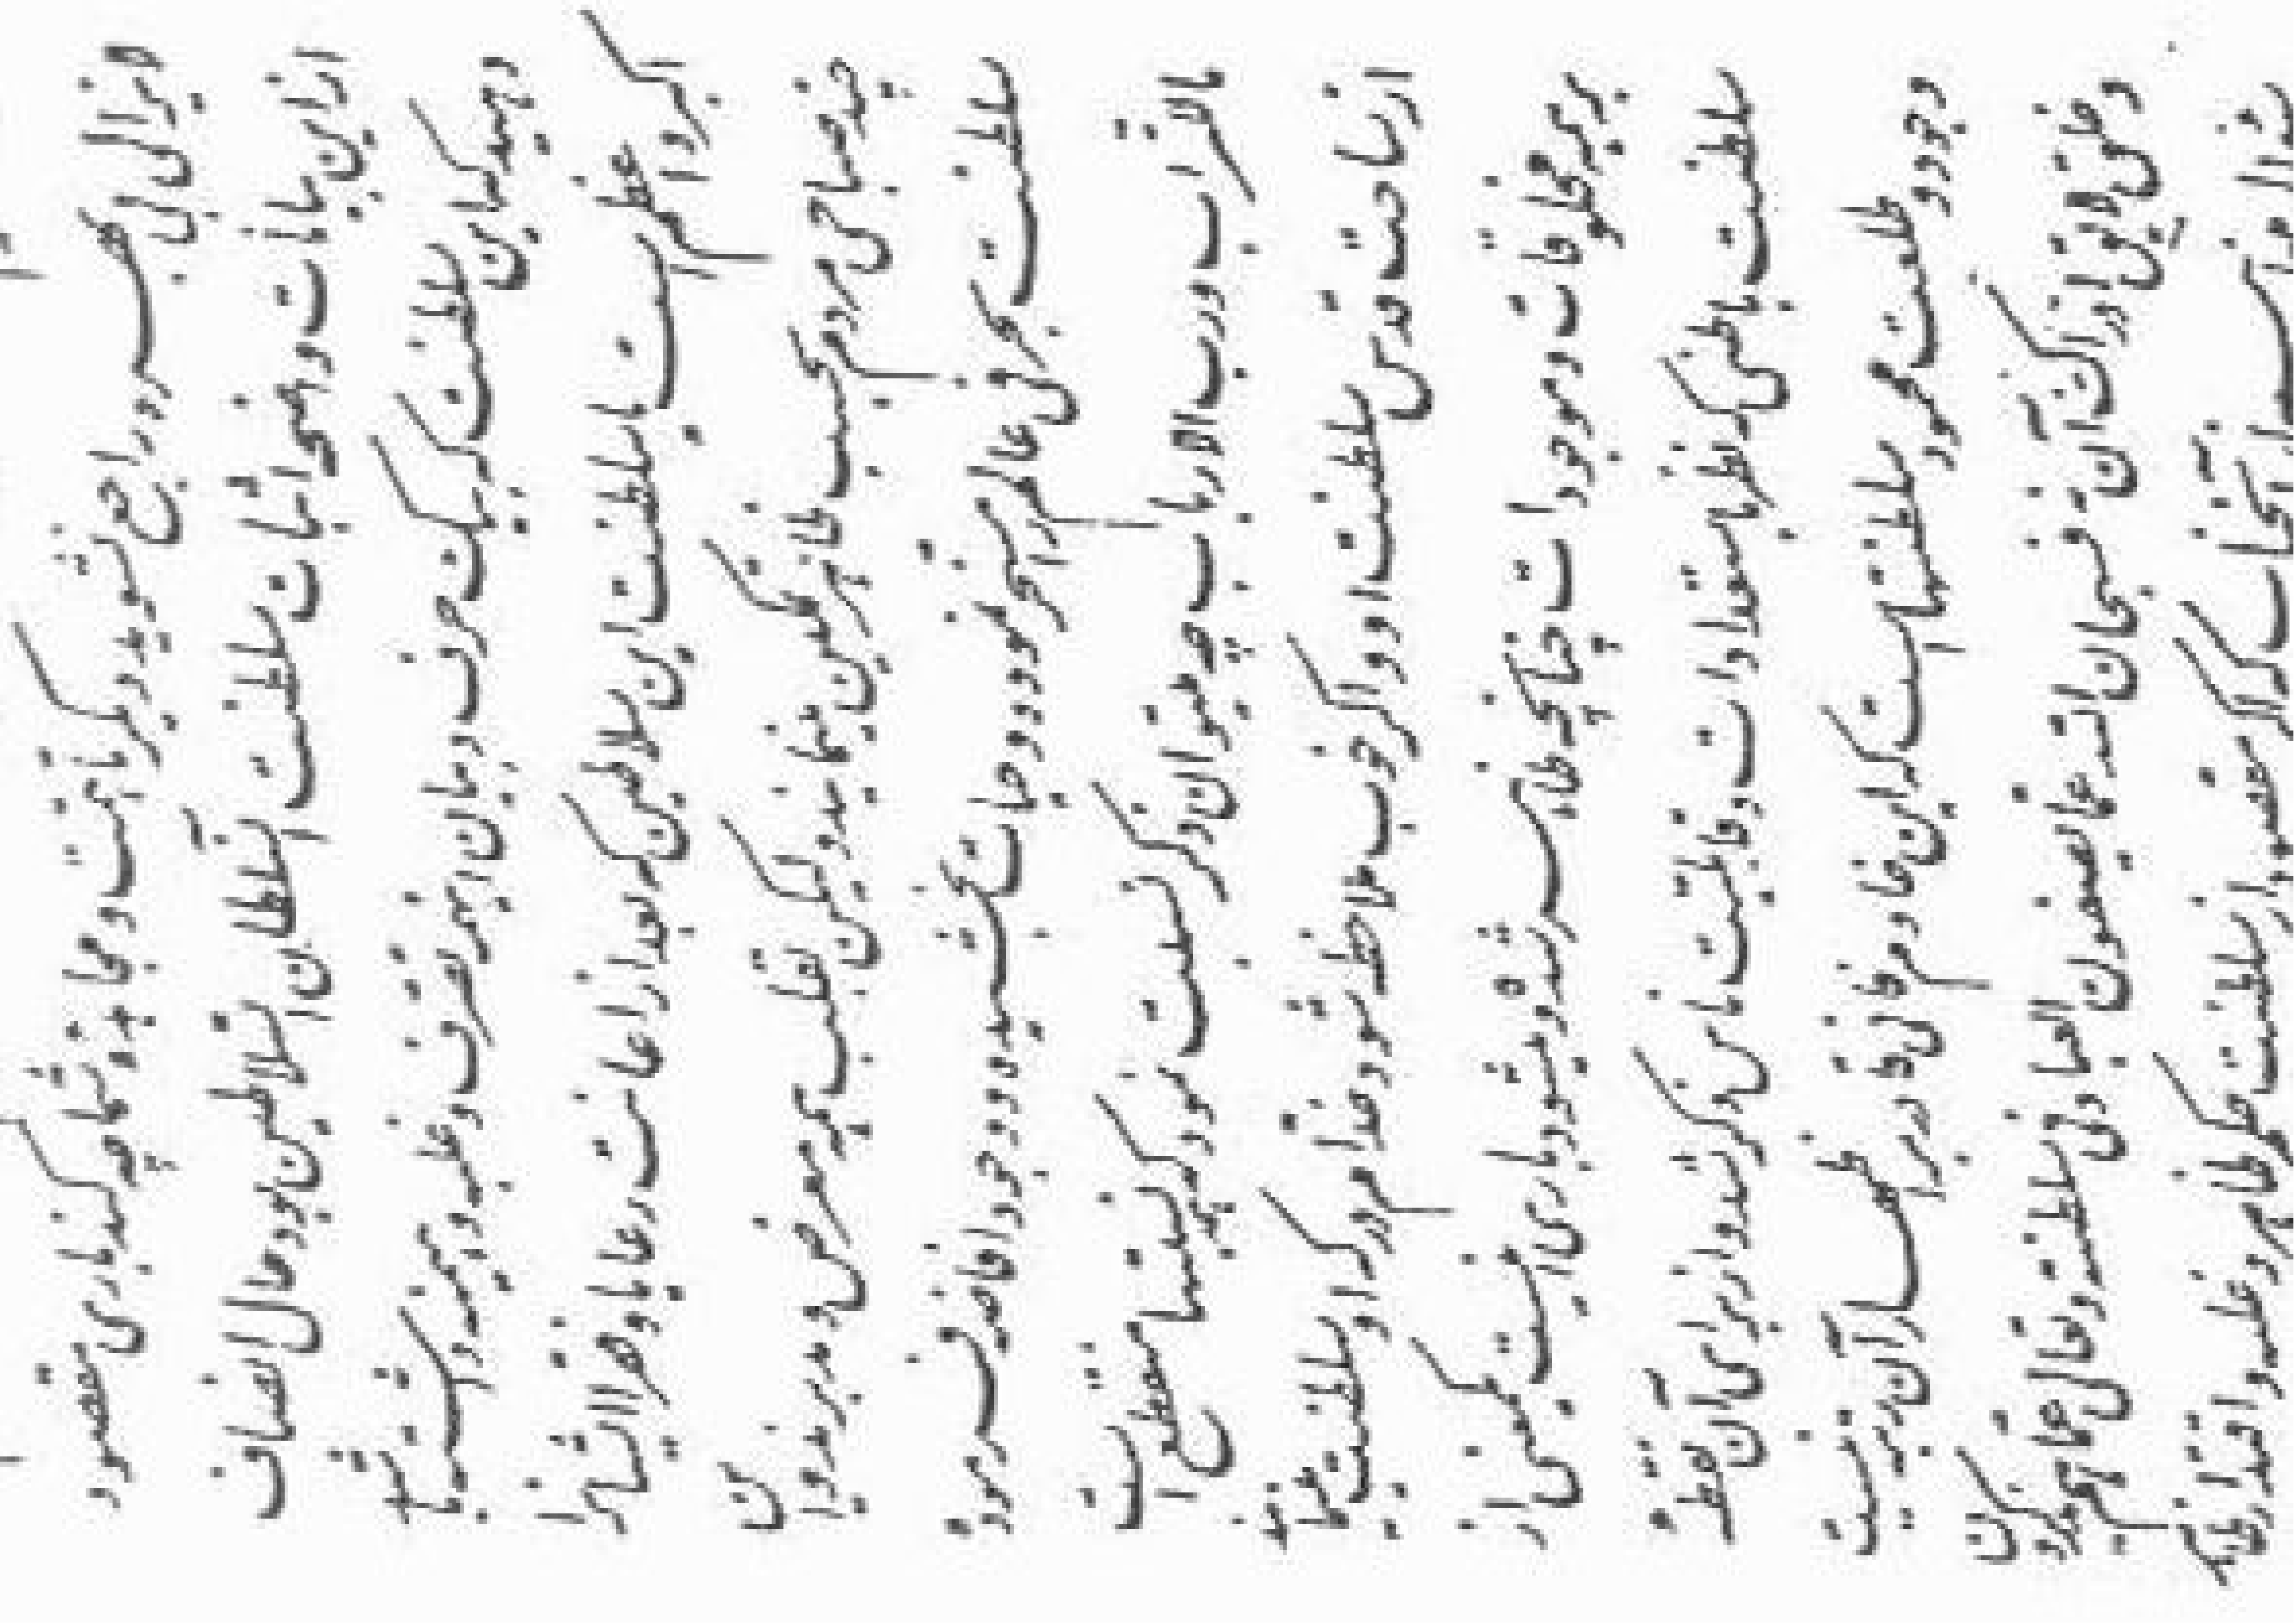 راجع شوید و دیگر شما چه کند باری مقصود
از این بیانات واضحه اثبات سلطنت آن سلطان السلاطین بود حال انصاف
دهید که این سلطنت که بیک حرف و بیان اینهمه تصرف و غلبه و هیمنه داشته باشد
اکبر و اعظم است یا سلطنت این سلاطین که بعد از اعانت رعایا و فقرا ایشانرا
چند صباحی مردم بحسب ظاهر تمکین مینمایند ولیکن بقلب همه معرض و مدبرند و این
سلطنت بحرفی عالم را مسخر نموده و حیات بخشیده و وجود افاضه فرموده
ما للتراب و رب الارباب چه میتوان ذکر نسبت نمود که همه نسبتها منقطع است
از ساحت قدس سلطنت او و اگر خوب ملاحظه شود خدام درگه او سلطنت مینمایند
بر همه مخلوقات و موجودات چنانچه ظاهر شده و میشود باری اینست معنی از
سلطنت باطنی که نظر باستعدادات و قابلیت ناس ذکر شد و از برای آن نقطهٔ
وجود و طلعت محمود سلطنتهاست که این خادم فانی قادر بر اظهار آن رتبه نیست
و خلق لایق ادراک آن نه فسبحان الله عما یصفون العباد فی سلطنته و تعالی عما هم یذکرون
سؤال از آنجناب که اگر مقصود از سلطنت حکم ظاهر و غلبه و اقتدار ظاهر